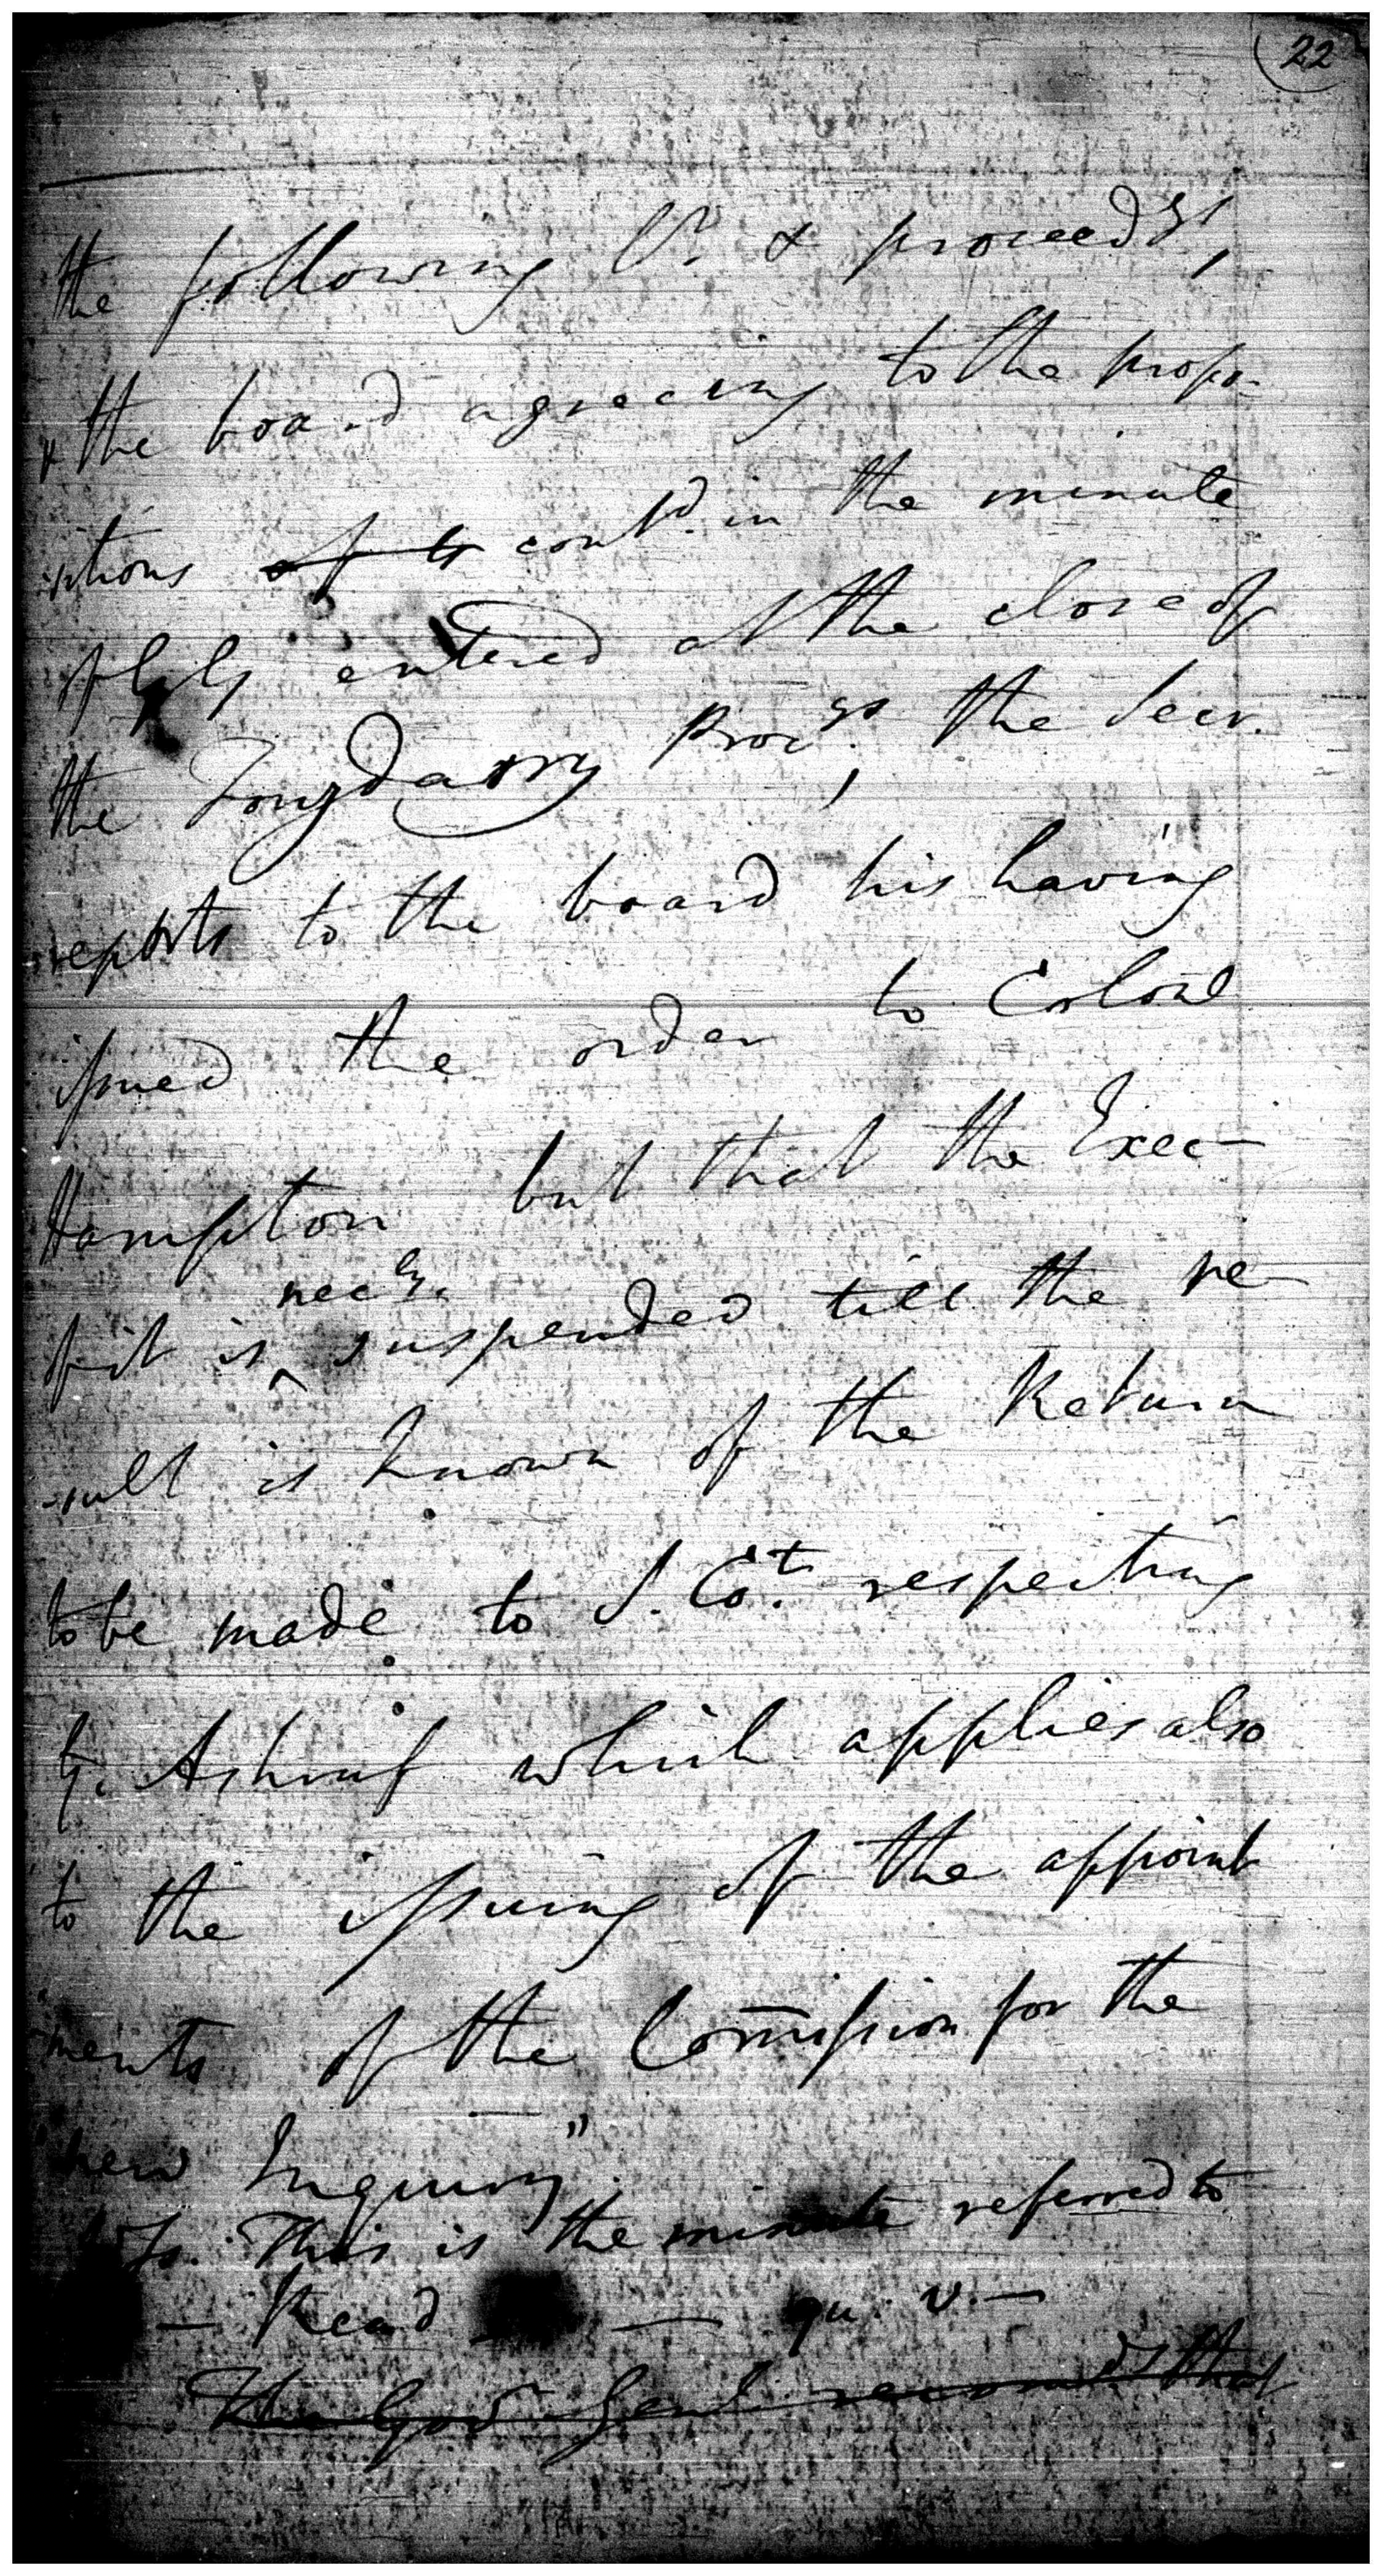 22
the following & proceedgs,
the board agreeing to the propo-
sitions of ts contd. in the minute
entered at the close of
the Fougdarry Procgs. the Secr.
reports to the board his having
issued the order to Colonl
Hampton but that the Exec-
necly.
of it is ^ suspended till the re-
-sult is known of the Return
to be made to S. Cot. respecting
Ashruf which applies also
to the issuing of the appoint
ments of the Comission for the
new Inquiry".
This is the minute referred to
— Read — qu. v. —
The Govr Genl recomds that